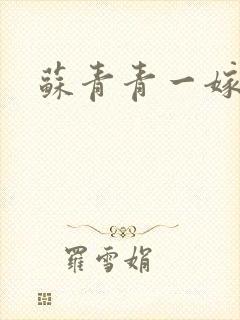 蘇青青一嫁
羅雪娟